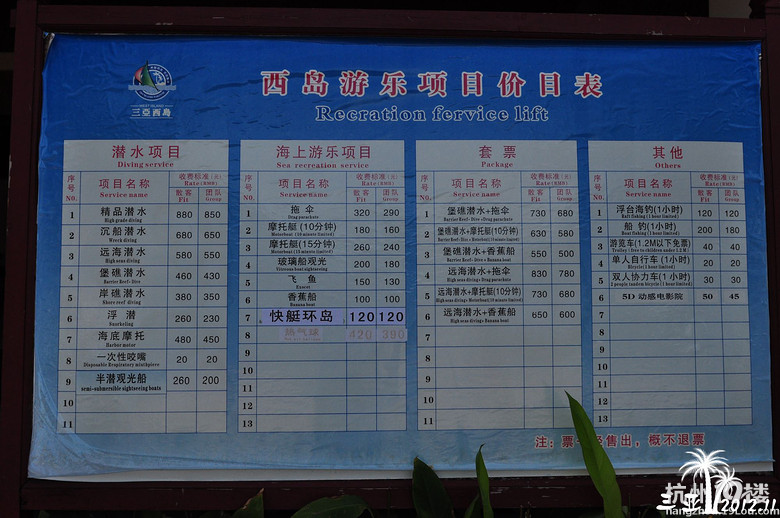 西岛游乐项目价目表
Recration fervice lift
WEST ISLAND
三亞西島
潜水项目
Diving service
序号 NO. 项目名称 Service name 收费标准 Rate(RMB) 散客 Fit 团队 Group
1 精品潜水 High grade diving 880 850
2 沉船潜水 Wreck diving 680 650
3 远海潜水 High seas diving 580 550
4 堡礁潜水 Barrier Reef diving 460 430
5 岸礁潜水 Shore reef diving 380 350
6 浮潜 Snorkeling 260 230
7 海底摩托 Harbor motor 480 450
8 一次性咬嘴 Disposable Respiratory mouthpiece 20 20
9 半潜观光船 semi-submersible sightseeing boats 260 200
10
11
海上游乐项目
Sea recreation service
序号 NO. 项目名称 Service name 收费标准 Rate(RMB) 散客 Fit 团队 Group
1 拖伞 Drag parachute 320 290
2 摩托艇(10分钟) Motorboat (10 minute limited) 180 160
3 摩托艇(15分钟) Motorboat (15 minute limited) 260 240
4 玻璃船观光 200 180
5 飞鱼 150 130
6 香蕉船 Banana boat 100 100
7 快艇环岛 120 120
8 热气球 420 390
9
10
11
12
13
套票
Package
序号 NO. 项目名称 Service name 收费标准 Rate(RMB) 散客 Fit 团队 Group
1 堡礁潜水+拖伞 Barrier Reef-Dive+Drag parachute 730 680
2 堡礁潜水+摩托艇(10分钟) 630 580
3 堡礁潜水+香蕉船 Barrier Reef-Dive+Banana boat 550 500
4 远海潜水+拖伞 High seas diving+Drag parachute 830 780
5 远海潜水+摩托艇(10分钟) 730 680
6 远海潜水+香蕉船 High seas diving+Banana boat 650 600
7
8
9
10
11
其他
Others
序号 NO. 项目名称 Service name 收费标准 Rate(RMB) 散客 Fit 团队 Group
1 浮台海钓(1小时) Raft fishing (1 hour limited) 120 120
2 船钓(1小时) Boat fishing (1 hour limited) 200 180
3 游览车(1.2M以下免票) 40 40
4 单人自行车(1小时) Bicycle(1 hour limited) 20 20
5 双人协力车(1小时) 2 people tandem bicycle (1 hour limited) 30 30
6 5D 动感电影院 50 45
7
8
9
10
11
12
13
注: 票一经售出，概不退票
杭州19楼
hangzhou.19lou.com